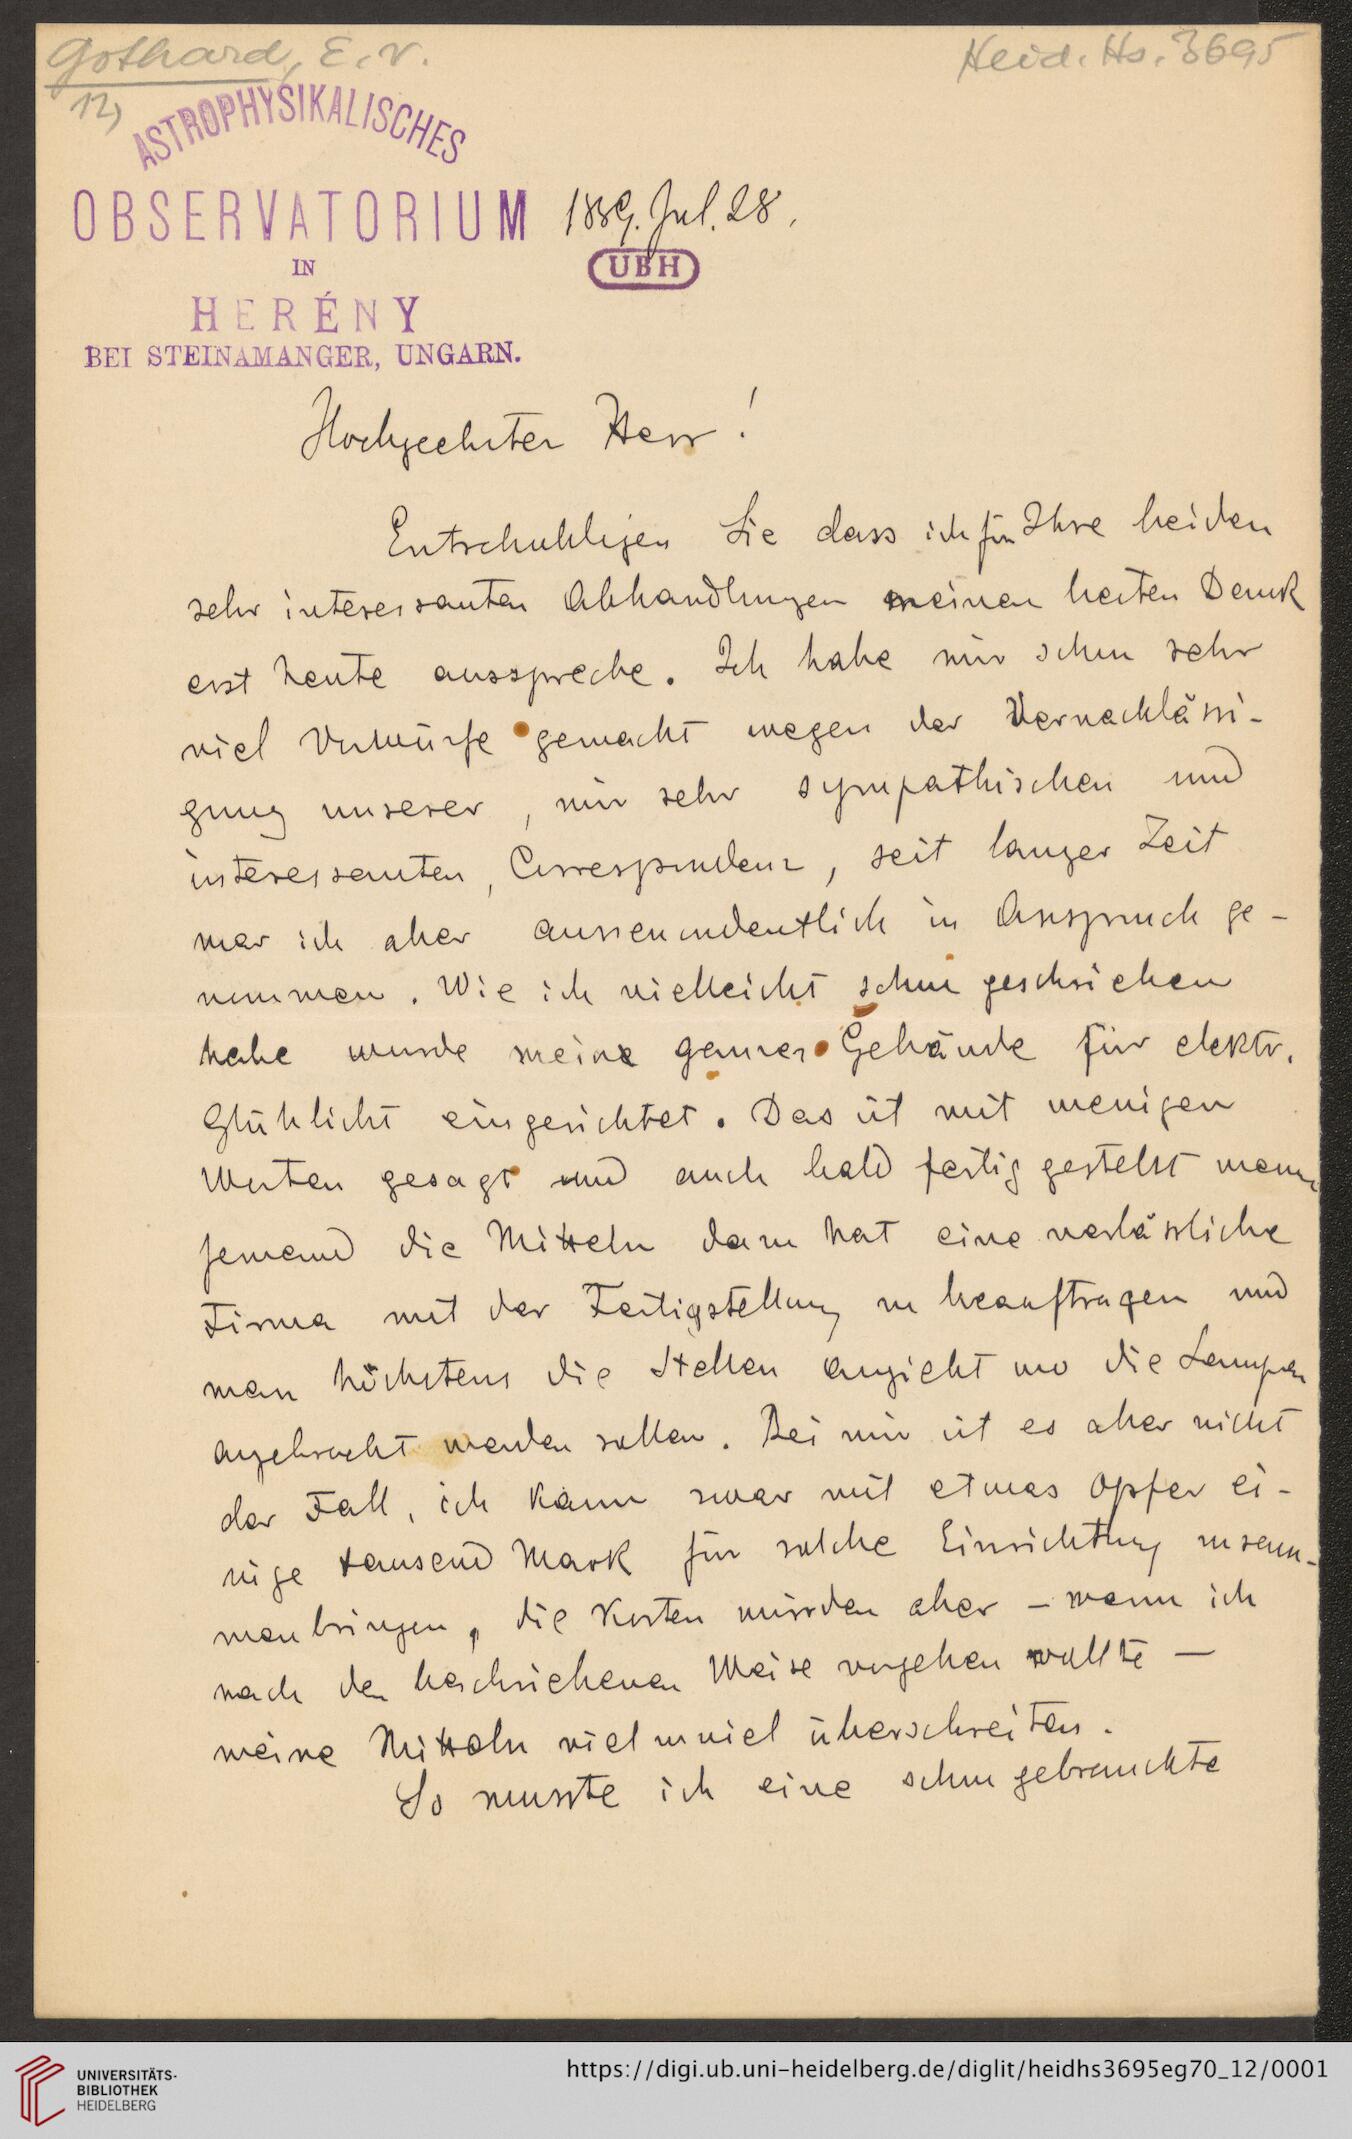 Gothard, E. v.
Heid. Hs. 3695
12,
ASTROPHYSIKALISCHES
OBSERVATORIUM
1889. Jul. 28.
IN
UBH
HERÉNY
BEI STEINAMANGER, UNGARN.
Hochgeehrter Herr!
Entschuldigen Sie dass ich für Ihre beiden
sehr interessanten Abhandlungen meinen besten Dank
erst heute ausspreche. Ich habe mir schon sehr
viel Vorwürfe gemacht wegen der Vernachlässi-
gung unserer, mir sehr sympathischen und
interessanten, Correspondenz, seit langer Zeit
war ich aber ausserordentlich in Anspruch ge-
nommen. Wie ich vielleicht schon geschrieben
habe wurde meine ganzes Gebäude für elektr.
Glühlicht eingerichtet. Das ist mit wenigen
Worten gesagt und auch bald fertig gestellt wenn
jemand die Mitteln dazu hat eine verlässliche
Firma mit der Fertigstellung zu beauftragen und
man höchstens die Stellen angiebt wo die Lampen
angebracht werden sollen. Bei mir ist es aber nicht
der Fall, ich kann zwar mit etwas Opfer ei-
nige tausend Mark für solche Einrichtung zusam-
menbringen, die Kosten würden aber – wenn ich
nach der beschriebenen Weise vorgehen wollte –
meine Mitteln viel zu viel überschreiten.
So musste ich eine schon gebrauchte
UNIVERSITÄTS-
BIBLIOTHEK
HEIDELBERG
https://digi.ub.uni-heidelberg.de/diglit/heidhs3695eg70_12/0001